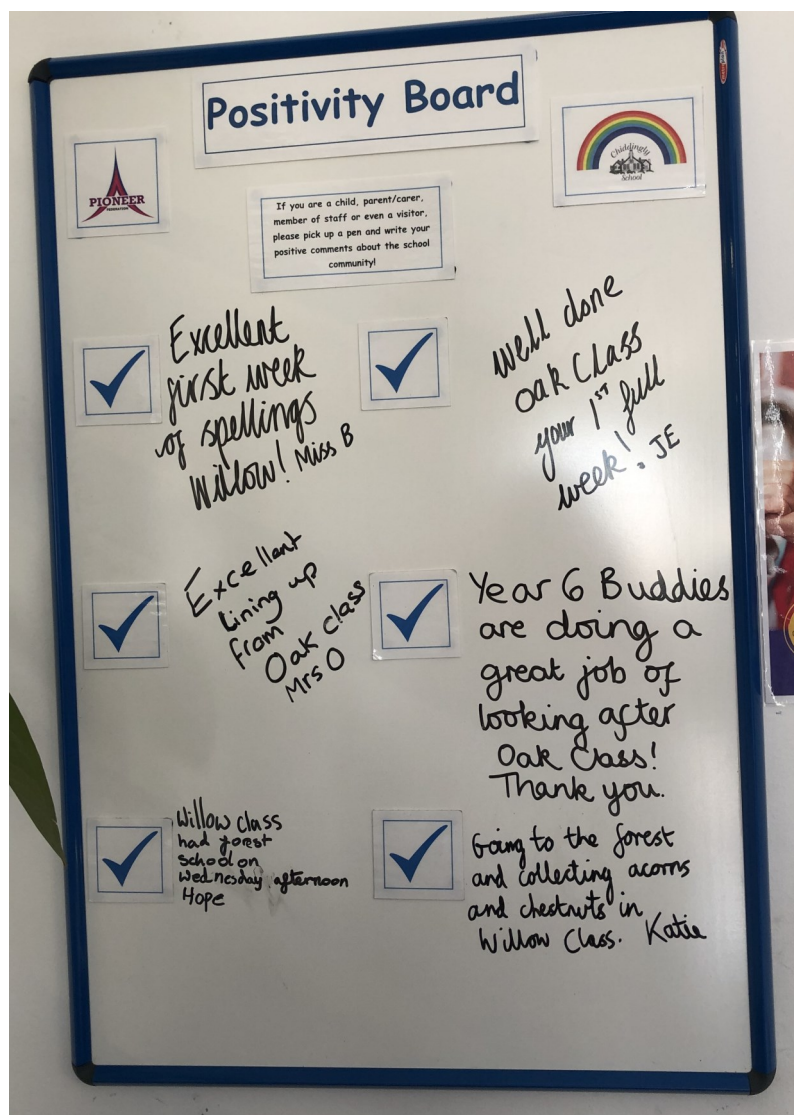 Positivity Board
PIONEER
FEDERATION
Chiddingly
School
If you are a child, parent/carer,
member of staff or even a visitor,
please pick up a pen and write your
positive comments about the school
community!
Excellent
first week
of spellings
Willow! Miss B
Well done
Oak Class
your 1ST full
week! JE
Excellent
lining up
from
Oak class
Mrs O
Year 6 Buddies
are doing a
great job of
looking after
Oak Class!
Thank you.
Willow class
had forest
school on
Wednesday afternoon
Hope
Going to the forest
and collecting acorns
and chestnuts in
Willow Class. Katie